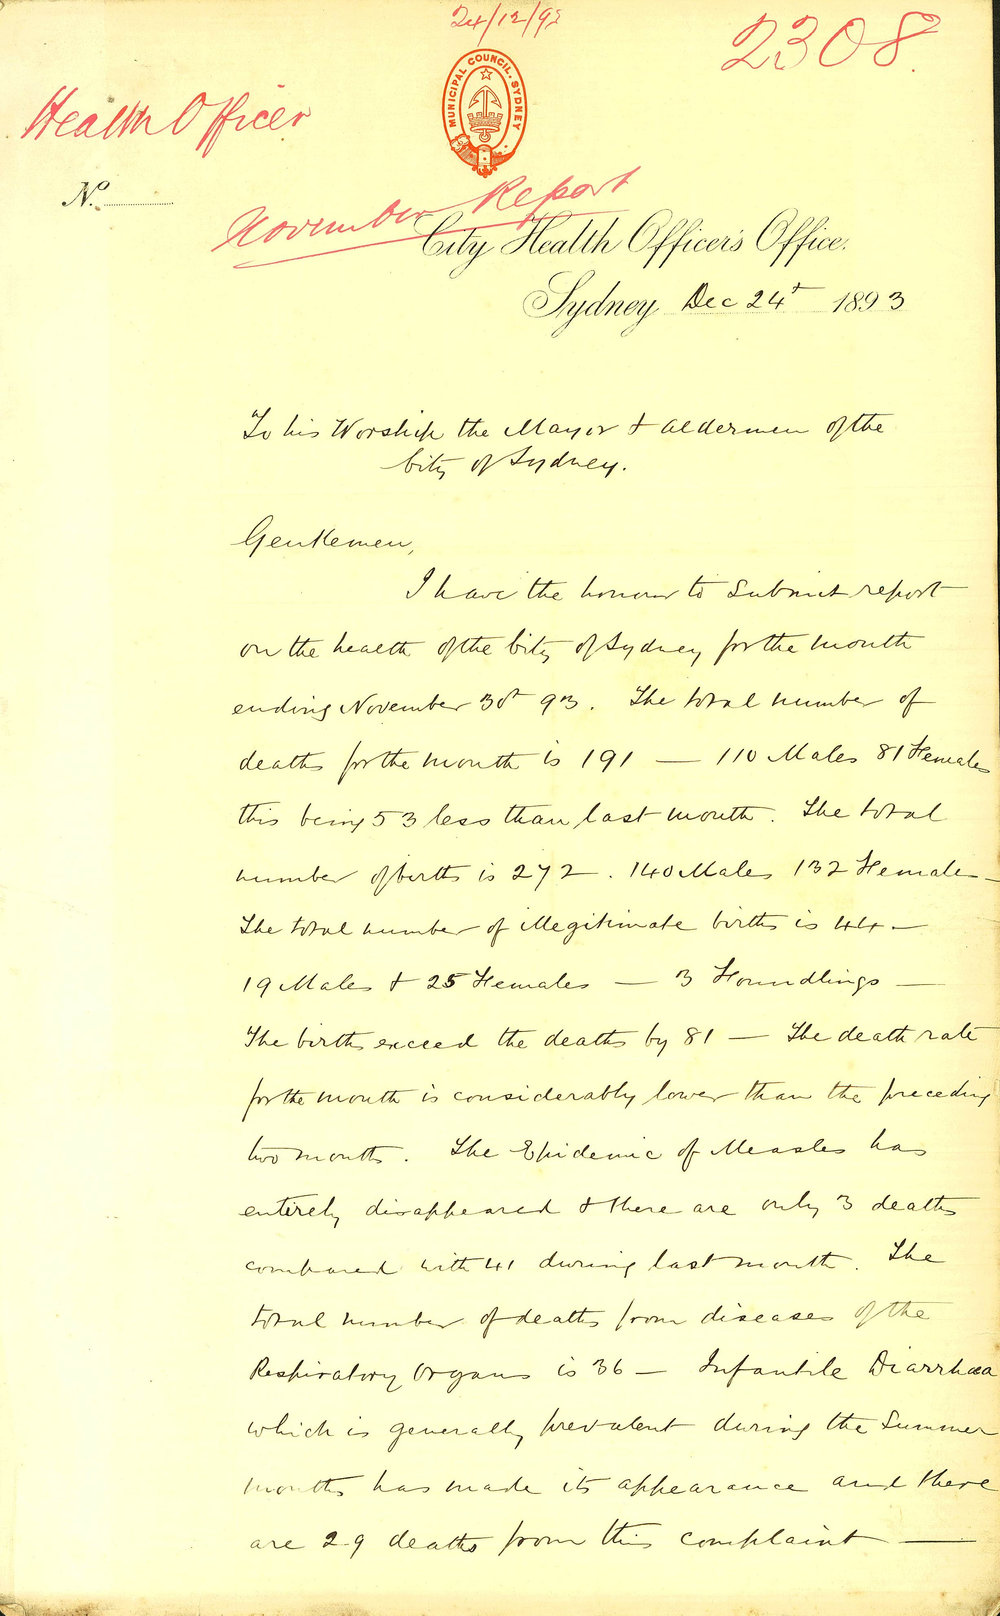 24/12/93
2308.
MUNICIPAL COUNCIL. SYDNEY
Health Officer
No.
November Report
City Health Officer's Office.
Sydney Dec 24t 1893
To his Worship the Mayor & Aldermen of the
City of Sydney.
Gentlemen,
I have the honour to submit report
on the health of the City of Sydney for the month
ending November 30t 93. The total number of
deaths for the month is 191 — 110 Males 81 Females
this being 53 less than last month. The total
number of births is 272. 140 Males 132 Females —
The total number of illegitimate births is 44 —
19 Males & 25 Females — 3 Foundlings —
The births exceed the deaths by 81 — The death rate
for the month is considerably lower than the preceding
two months. The Epidemic of Measles has
entirely disappeared & there are only 3 deaths
compared with 41 during last month. The
total number of deaths from diseases of the
Respiratory Organs is 36 — Infantile Diarrhœa
which is generally prevalent during the Summer
months has made its appearance and there
are 29 deaths from this complaint —